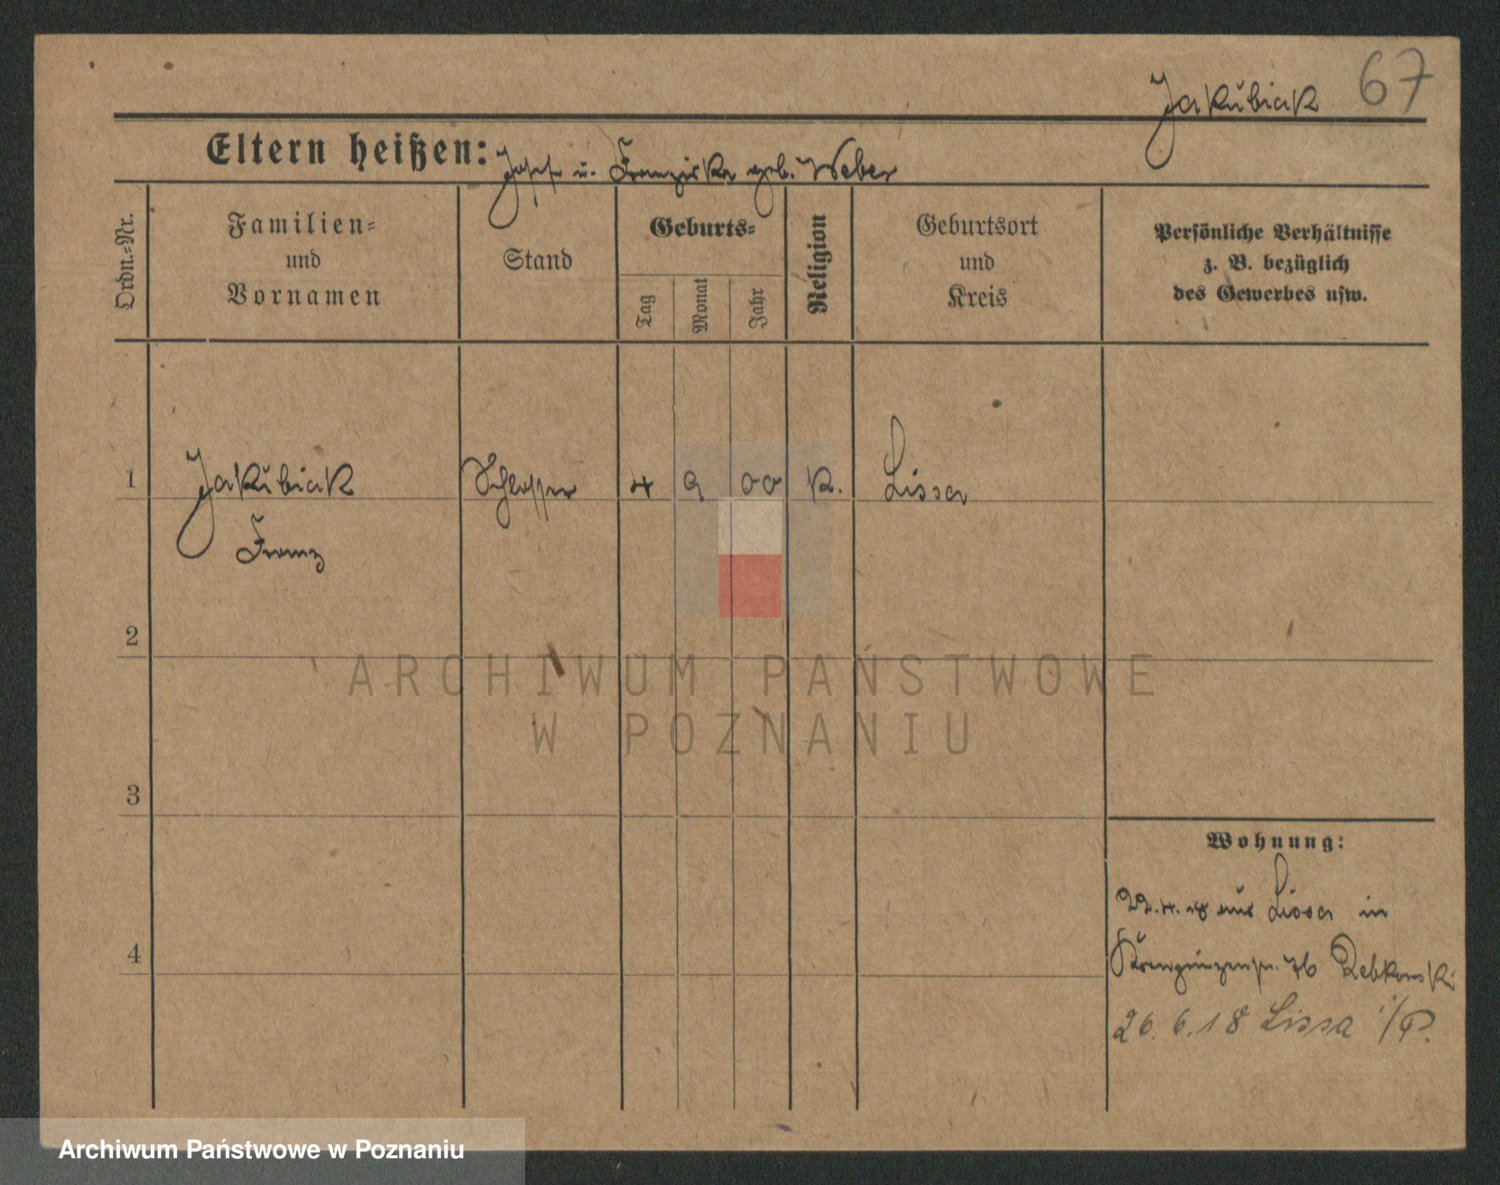 67
Jakubiak
Eltern heißen: Josef u. Franziska geb. Weber
Ordn.-Nr.
Familien-
und
Vornamen
Stand
Geburts-
Tag
Monat
Jahr
Religion
Geburtsort
und
Kreis
Persönliche Verhältnisse
z. B. bezüglich
des Gewerbes usw.
1 Jakubiak Schlosser 4 9 00 K. Lissa
Franz
2
ARCHIWUM PAŃSTWOWE
W POZNANIU
3
Wohnung:
22.4.18 aus Lissa in
4
76 Rebkowski
26.6.18 Lissa i/P.
Archiwum Państwowe w Poznaniu